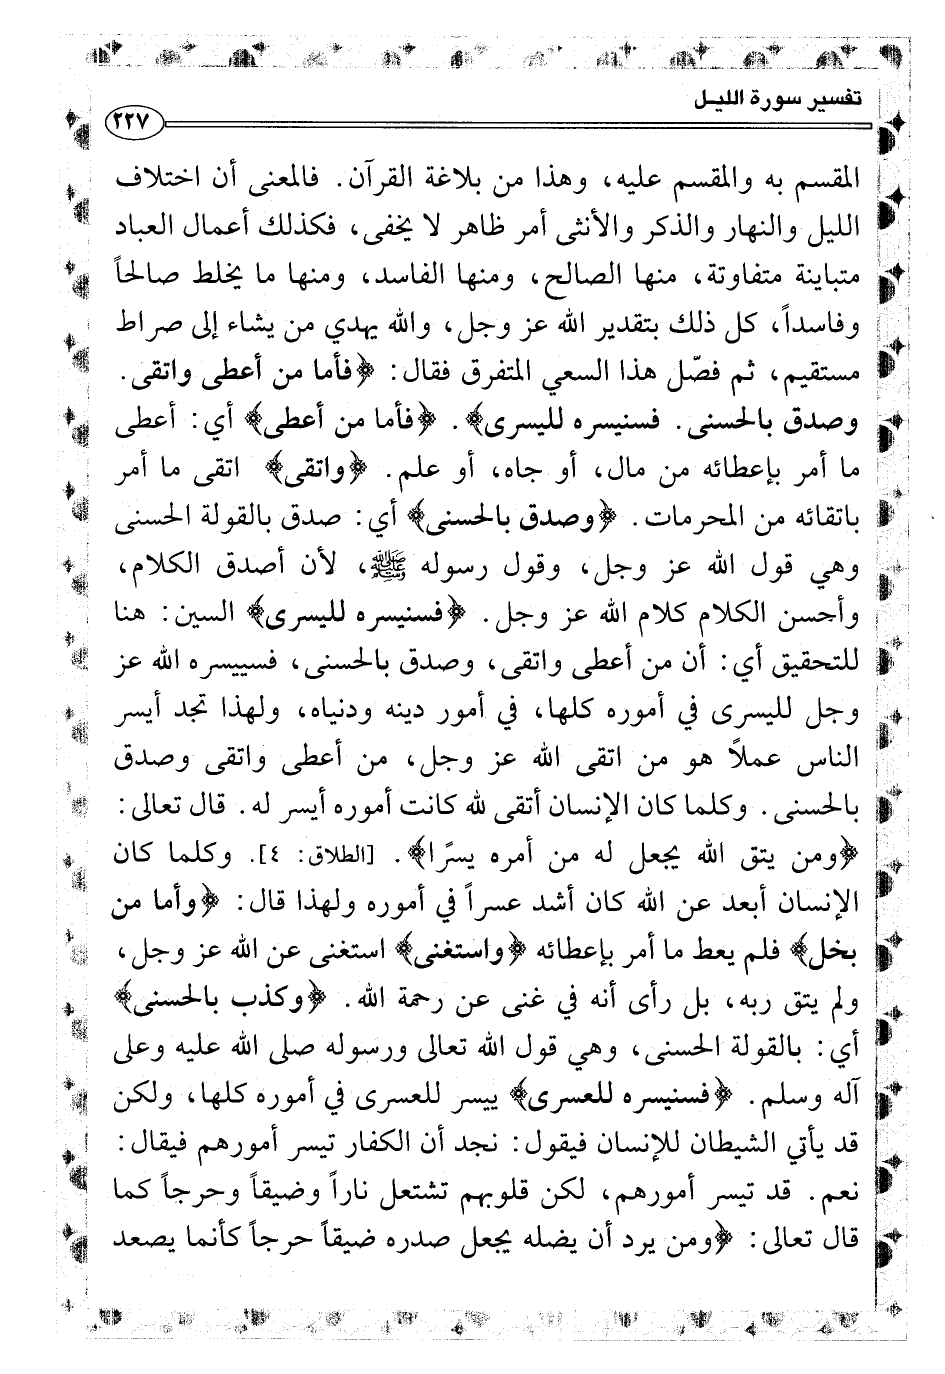 تفسير سورة الليـل
٢٢٧
المقسم به والمقسم عليه، وهذا من بلاغة القرآن. فالمعنى أن اختلاف
الليل والنهار والذكر والأنثى أمر ظاهر لا يخفى، فكذلك أعمال العباد
متباينة متفاوتة، منها الصالح، ومنها الفاسد، ومنها ما يخلط صالحاً
وفاسداً، كل ذلك بتقدير الله عز وجل، والله يهدي من يشاء إلى صراط
مستقيم، ثم فصّل هذا السعي المتفرق فقال: ﴿فأما من أعطى واتقى.
وصدق بالحسنى. فسنيسره لليسرى﴾. ﴿فأما من أعطى﴾ أي: أعطى
ما أمر بإعطائه من مال، أو جاه، أو علم. ﴿واتقى﴾ اتقى ما أمر
باتقائه من المحرمات. ﴿وصدق بالحسنى﴾ أي: صدق بالقولة الحسنى
وهي قول الله عز وجل، وقول رسوله ﷺ، لأن أصدق الكلام،
وأحسن الكلام كلام الله عز وجل. ﴿فسنيسره لليسرى﴾ السين: هنا
للتحقيق أي: أن من أعطى واتقى، وصدق بالحسنى، فسييسره الله عز
وجل لليسرى في أموره كلها، في أمور دينه ودنياه، ولهذا تجد أيسر
الناس عملاً هو من اتقى الله عز وجل، من أعطى واتقى وصدق
بالحسنى. وكلما كان الإنسان أتقى لله كانت أموره أيسر له. قال تعالى:
﴿ومن يتق الله يجعل له من أمره يسرًا﴾. [الطلاق: ٤]. وكلما كان
الإنسان أبعد عن الله كان أشد عسراً في أموره ولهذا قال: ﴿وأما من
بخل﴾ فلم يعط ما أمر بإعطائه ﴿واستغنى﴾ استغنى عن الله عز وجل،
ولم يتق ربه، بل رأى أنه في غنى عن رحمة الله. ﴿وكذب بالحسنى﴾
أي: بالقولة الحسنى، وهي قول الله تعالى ورسوله صلى الله عليه وعلى
آله وسلم. ﴿فسنيسره للعسرى﴾ ييسر للعسرى في أموره كلها، ولكن
قد يأتي الشيطان للإنسان فيقول: نجد أن الكفار تيسر أمورهم فيقال:
نعم. قد تيسر أمورهم، لكن قلوبهم تشتعل ناراً وضيقاً وحرجاً كما
قال تعالى: ﴿ومن يرد أن يضله يجعل صدره ضيقاً حرجاً كأنما يصعد